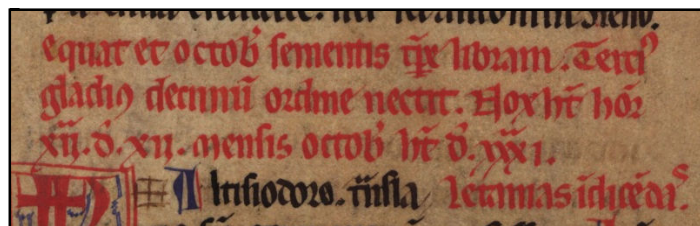 equat et octob̄ sementis tp̄e libram. Terciꝰ
gladiꝰ decimū ordine nectit. Nox hт̄ hor̄
xii. d̄. xii. mensis octob̄ hт̄ d̄. xxxi.
Altisiodoro. tn̄sla letanias īdicēdas.